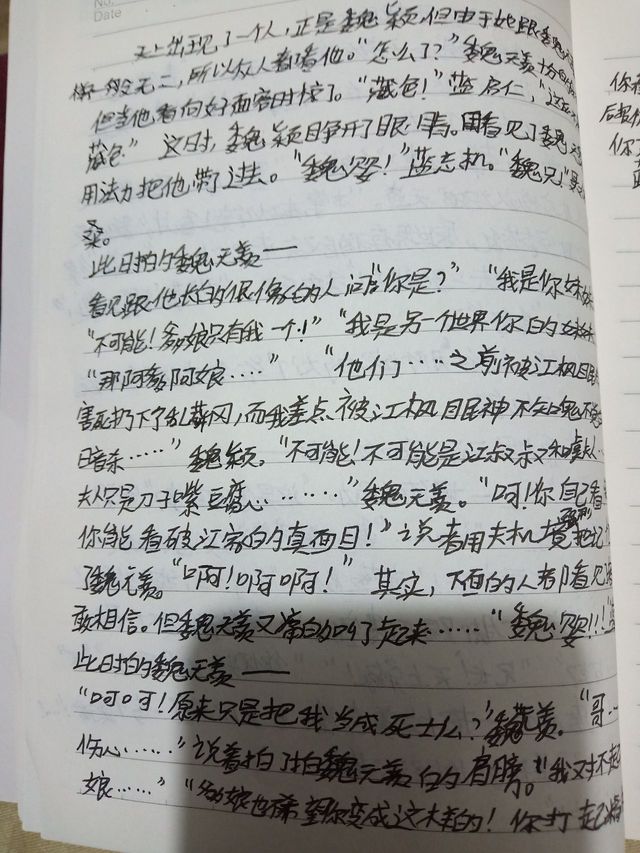 Date
天上出现了一个人，正是魏颖，但由于她跟魏无
一般无二，所以众人都看他。“怎么了？”魏无羡十分
但当他看向好面容时惊了。“藏色！”蓝启仁，“这
藏色” 这时，魏颖睁开了眼睛。用看见了魏无
用法力把他带了过去。“魏婴！”蓝忘机。“魏兄！”聂
桑。
此时的魏无羡——
看见跟他长的很像的人问“你是？” “我是你妹妹
“不可能！爹娘只有我一个！” “我是另一个世界你的妹妹
“那阿爹阿娘……” “他们……之前被江枫眠
害死扔下了乱葬冈，而我差点被江枫眠神不知鬼不觉
暗杀……”魏颖。“不可能！不可能是江叔叔和虞夫人…
夫人只是刀子嘴豆腐心………”魏无羡。“呵！你自己看
你能看破江家的真面目！”说着用天机镜把记
了魏无羡。“啊！啊啊！” 其实，下面的人都看见
敢相信。但魏无羡又痛的叫了起来……“魏婴！！！”
此时的魏无羡——
“呵呵！原来只是把我当成死士么？”魏无羡。“哥…
伤心……”说着拍了拍魏无羡的肩膀。“我对不起
娘……” “爹娘也希望你变成这样的！你打起
你
后
你了